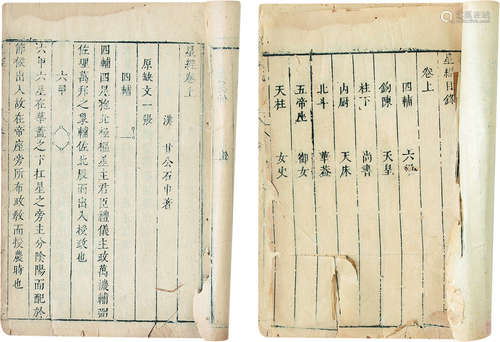 星經卷上
漢甘公石申著
原缺文一張
四輔
四輔四星抱北極樞星主君臣禮儀主政萬機輔弼
佐理萬邦之象輔佐北辰而出入授政也
六甲
六甲六星在華蓋之下杠星之旁主分陰陽而配於
節候出入故在帝座旁所布政教而授農時也
星經目錄
卷上
四輔 六甲
鉤陳 天皇
柱下 尚書
內厨 天床
北斗 華蓋
五帝座 御女
天柱 女史